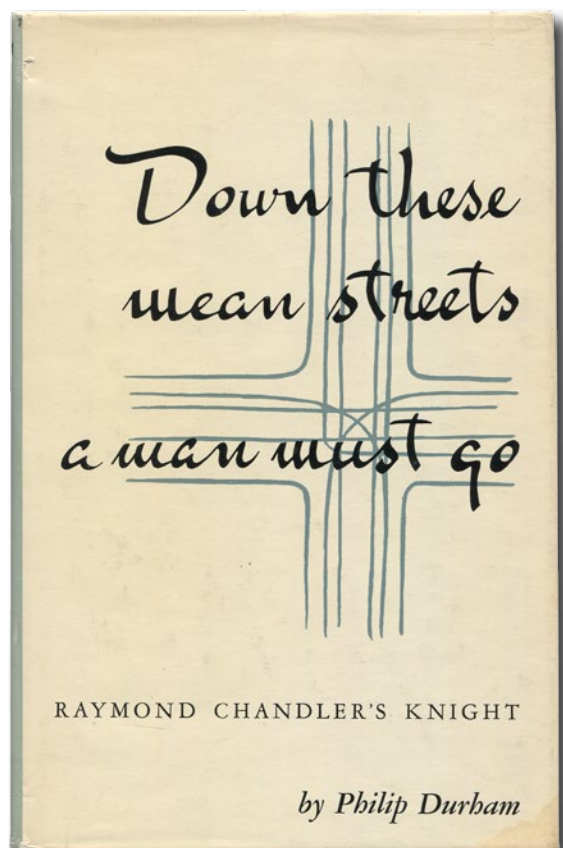 Down these
mean streets
a man must go
RAYMOND CHANDLER'S KNIGHT
by Philip Durham